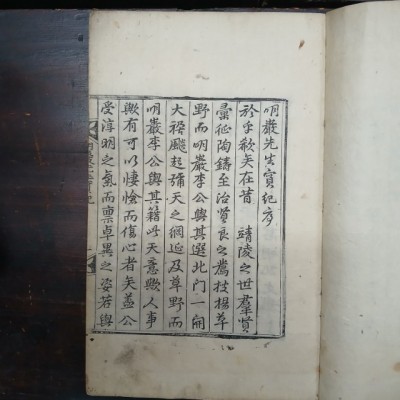 明巖先生實紀序
於乎欷矣在昔 靖陵之世群賢
彙征陶鑄至治賢良之薦枝楊草
野而明巖李公與其選北門一開
大禍飇起彌天之網延及草野而
明巖李公與其籍此天意歟人事
歟有可以悽愴而傷心者矣盖公
受淳明之氣而稟卓異之姿若與